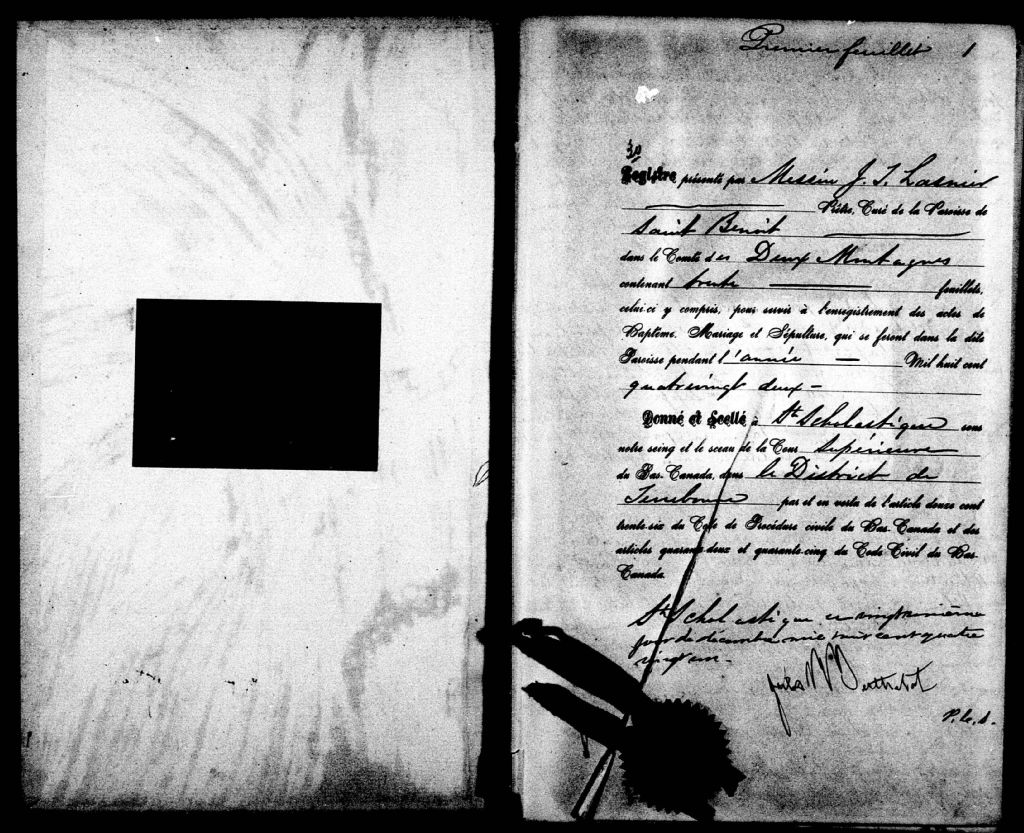 Premier feuillet 1
Registre présenté par Messire J. T. Lasnier
Prêtre, Curé de la Paroisse de
Saint Benoit
dans le Comté des Deux Montagnes
contenant trente feuillets,
celui-ci y compris, pour servir à l'enregistrement des actes de
Baptême, Mariage et Sépulture, qui se feront dans la dite
Paroisse pendant l'année — Mil huit cent
quatrevingt deux -
Donné et Scellé à Ste Scholastique sous
notre seing et le sceau de la Cour Supérieure
du Bas-Canada, dans le District de
Terrebonne par et en vertu de l'article douze cent
trente-six du Code de Procédure civile du Bas-Canada et des
articles quarante-deux et quarante-cinq du Code Civil du Bas-
Canada.
Ste Scholastique ce vingt
jour de décembre mil huit cent quatre
vingt un -
Berthelot
P. C. S.